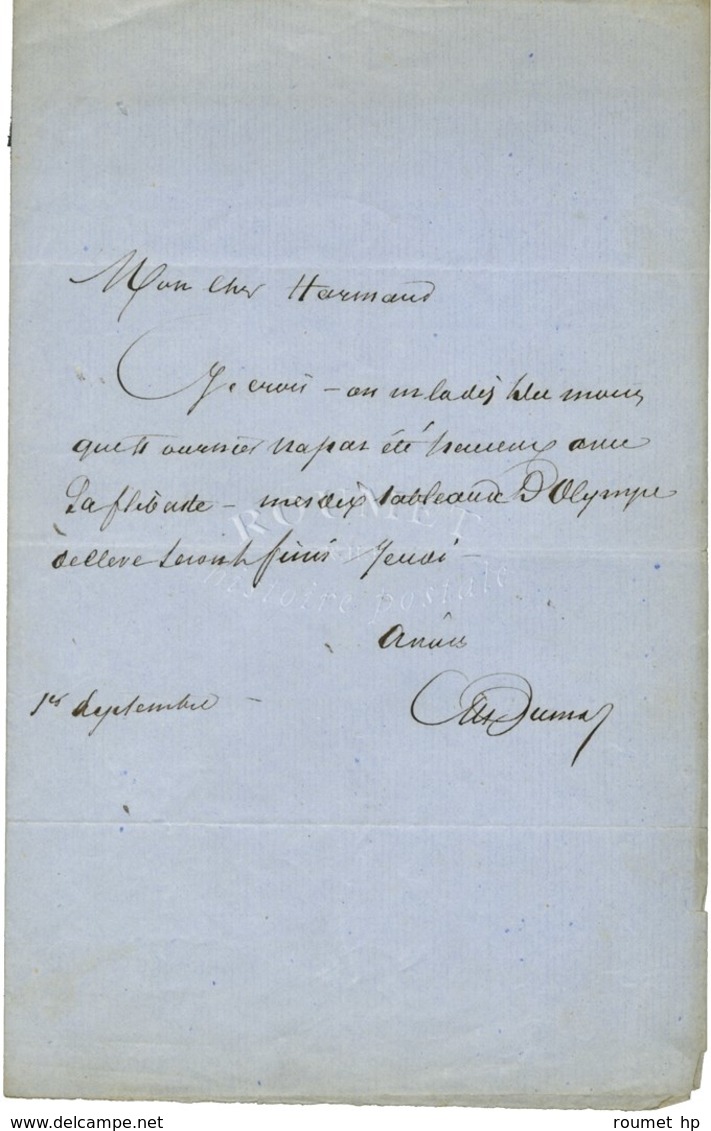 Mon cher Harmand
Je crois – on me la dis du moins
que Fournier na pas été heureux avec
La flibuste – mes dix tableaux D'Olympe
de cleve seront finis Jeudi –
Amitiés
1er Septembre –
Alex Dumas
ROUMET
histoire postale
roumet hp